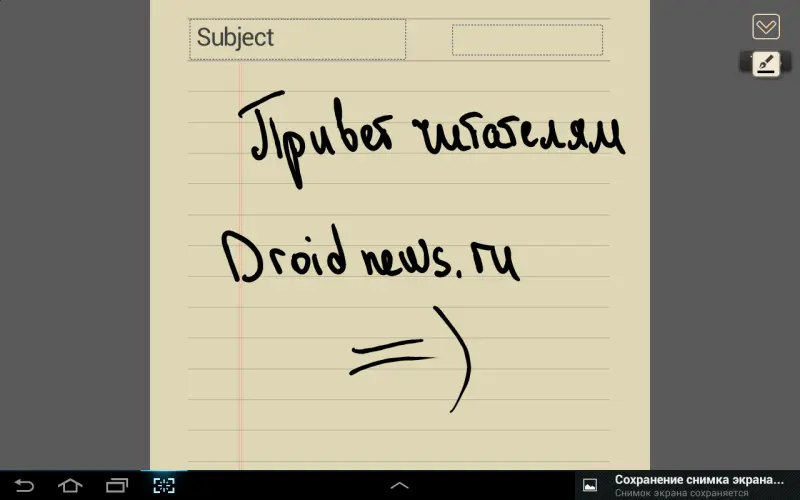 Subject
Привет читателям
Droidnews.ru
=)
Сохранение снимка экрана...
Снимок экрана сохраняется